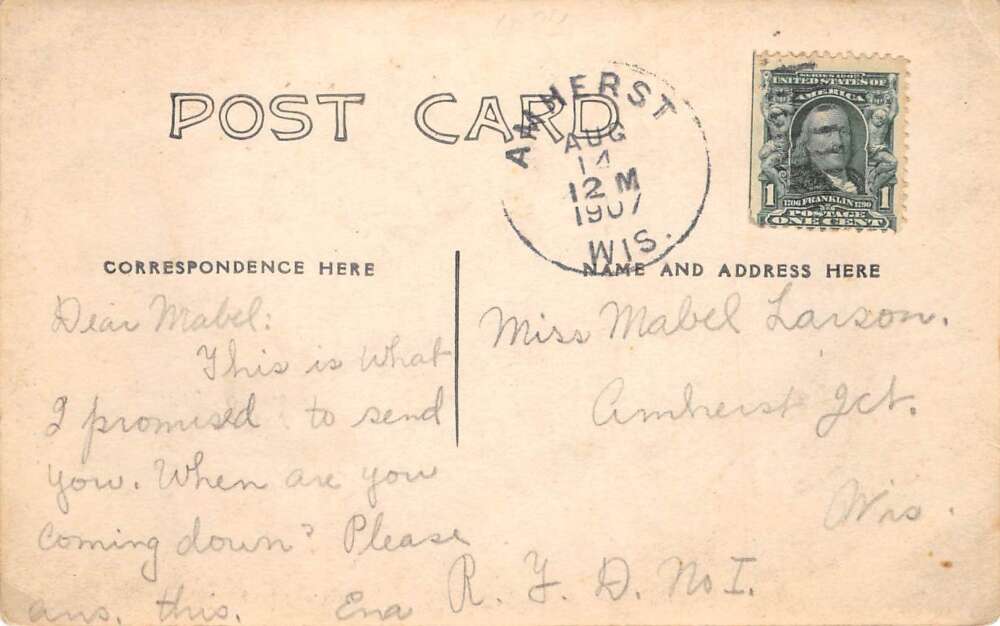 POST CARD
AMHERST
AUG
14
12 M
1907
WIS.
SERIES 1902
UNITED STATES OF
AMERICA
1 1706 FRANKLIN 1790 1
POSTAGE
ONE CENT
CORRESPONDENCE HERE
NAME AND ADDRESS HERE
Dear Mabel:
This is what
I promised to send
you. When are you
coming down? Please
ans. this. Ena
Miss Mabel Larson.
Amherst Jct.
Wis.
R. F. D. No I.